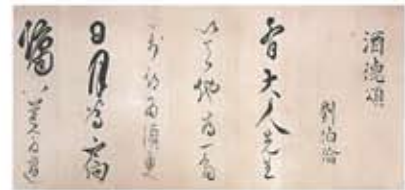 酒德頌
劉伯倫
有大人先生
以天地為一朝
萬期為須臾
日月為扃
牖八荒為庭